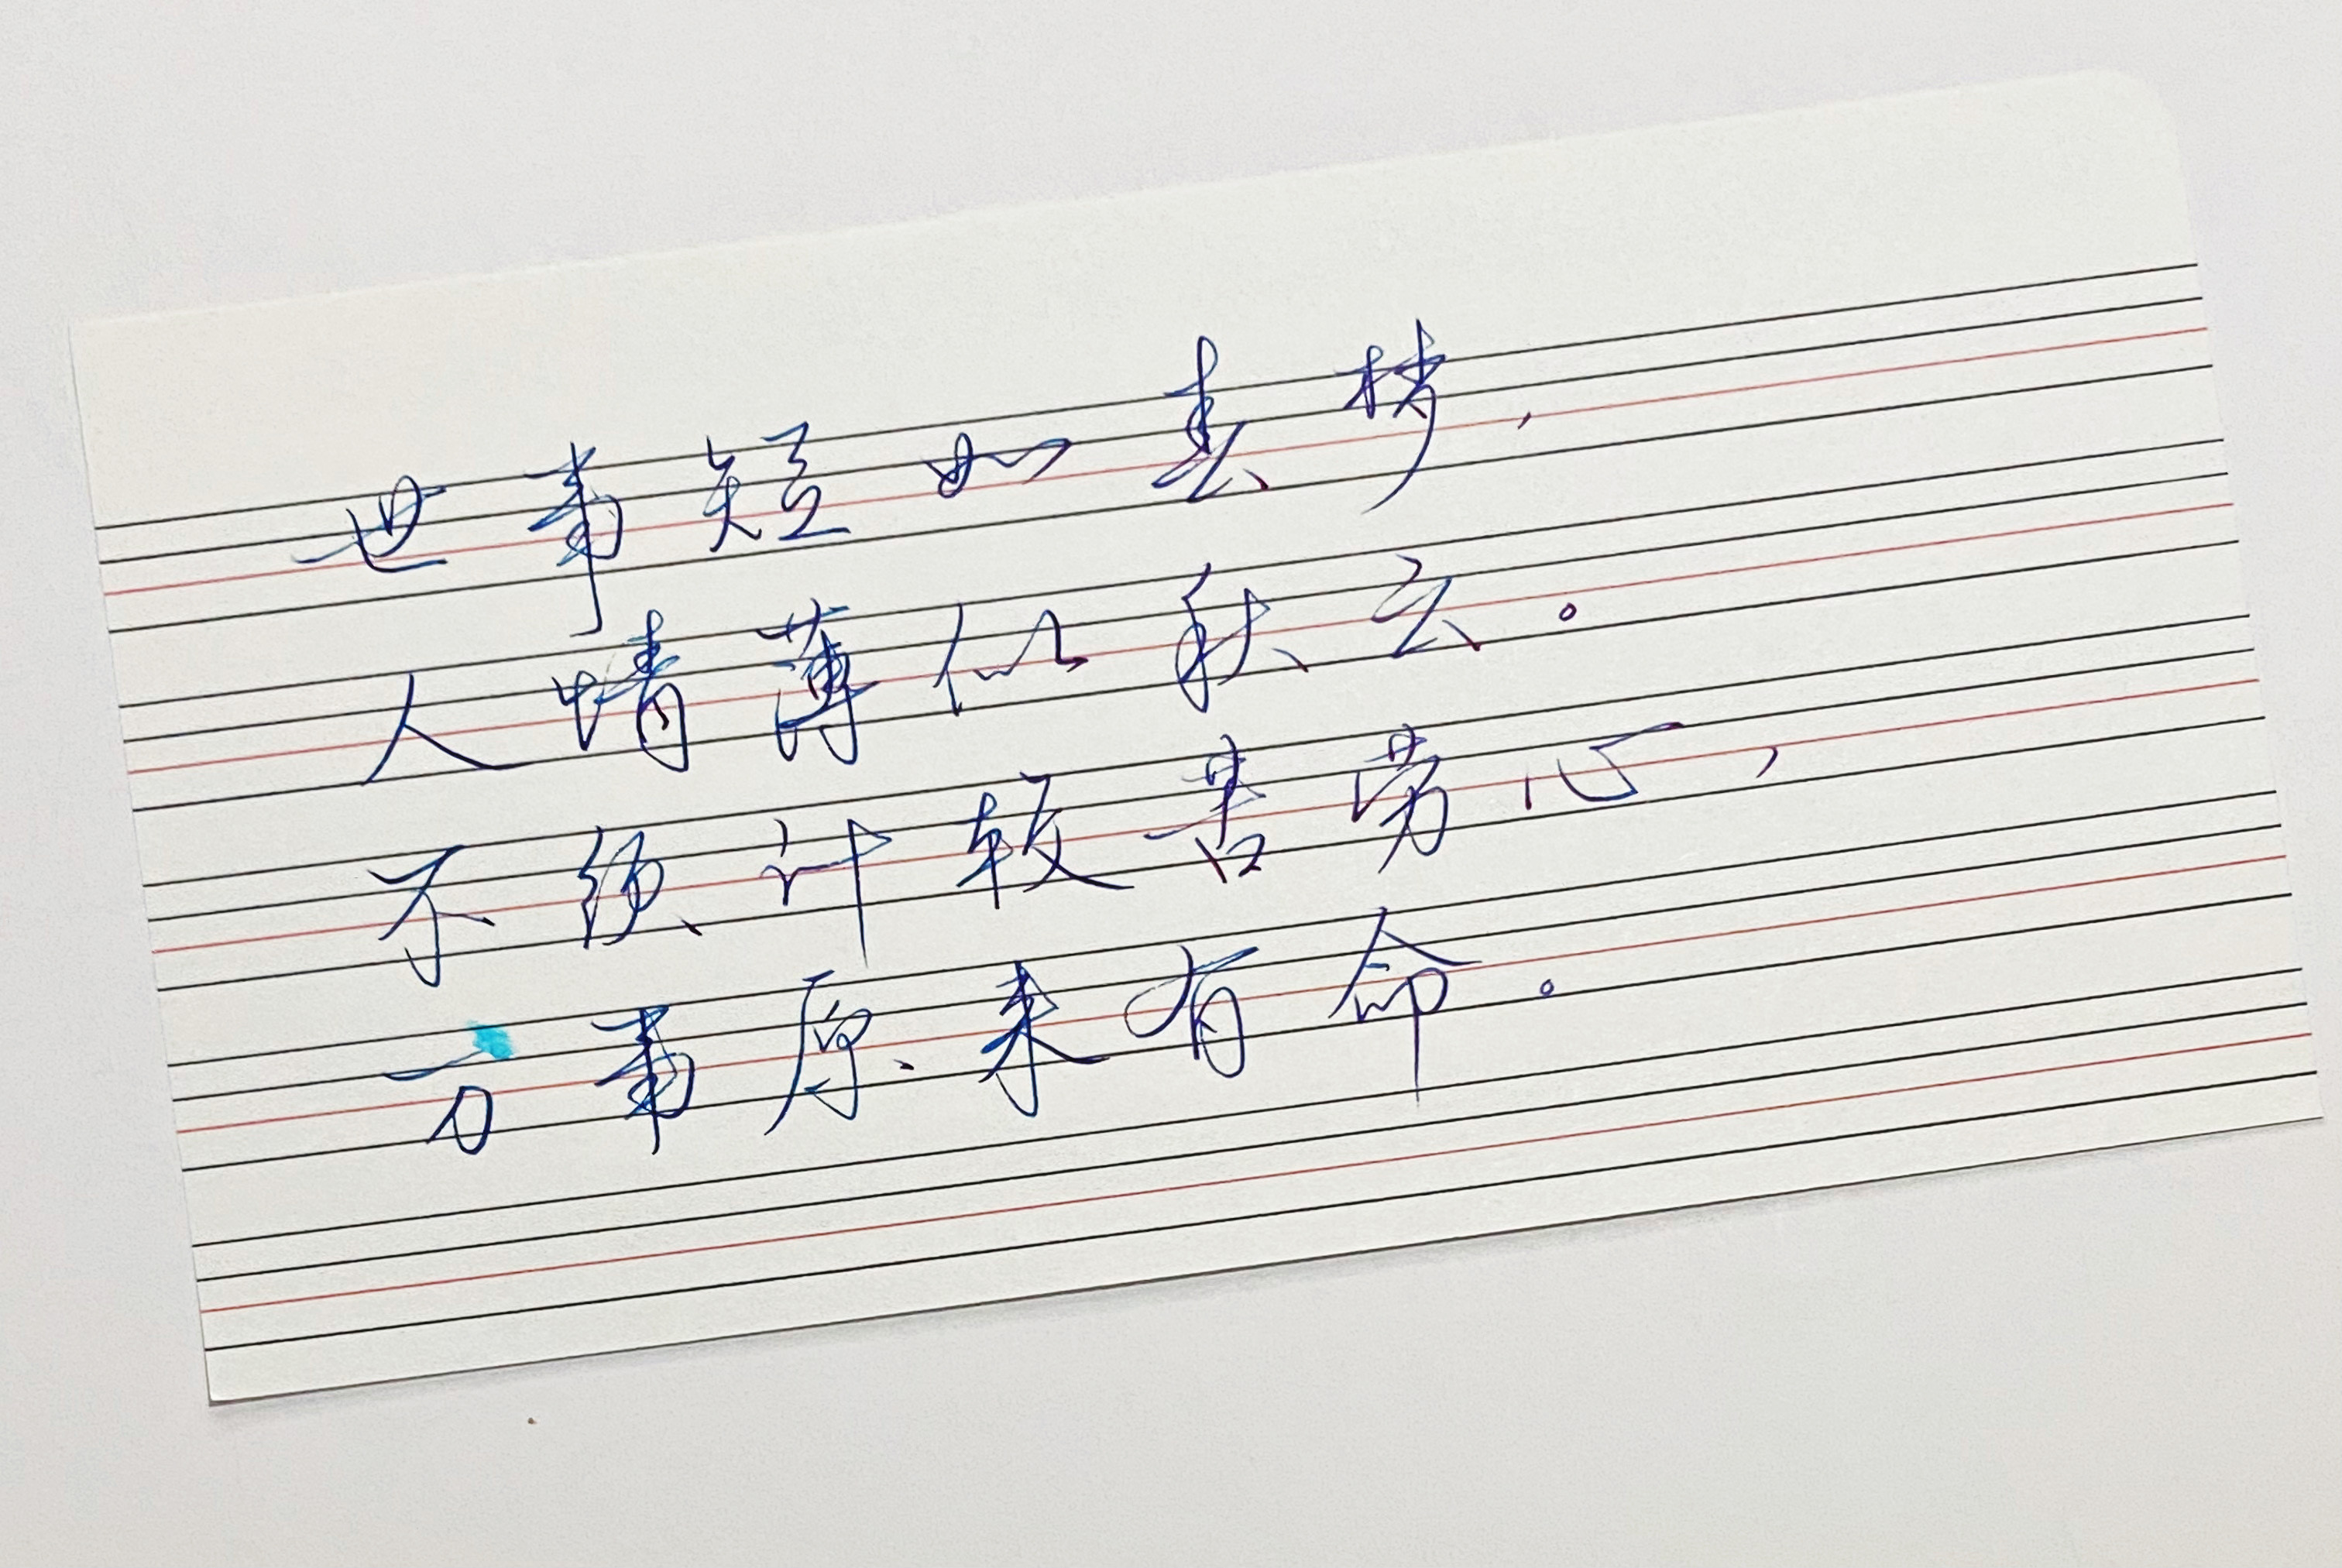 世事短如春梦，
人情薄似秋云。
不须计较苦劳心，
万事原来有命。